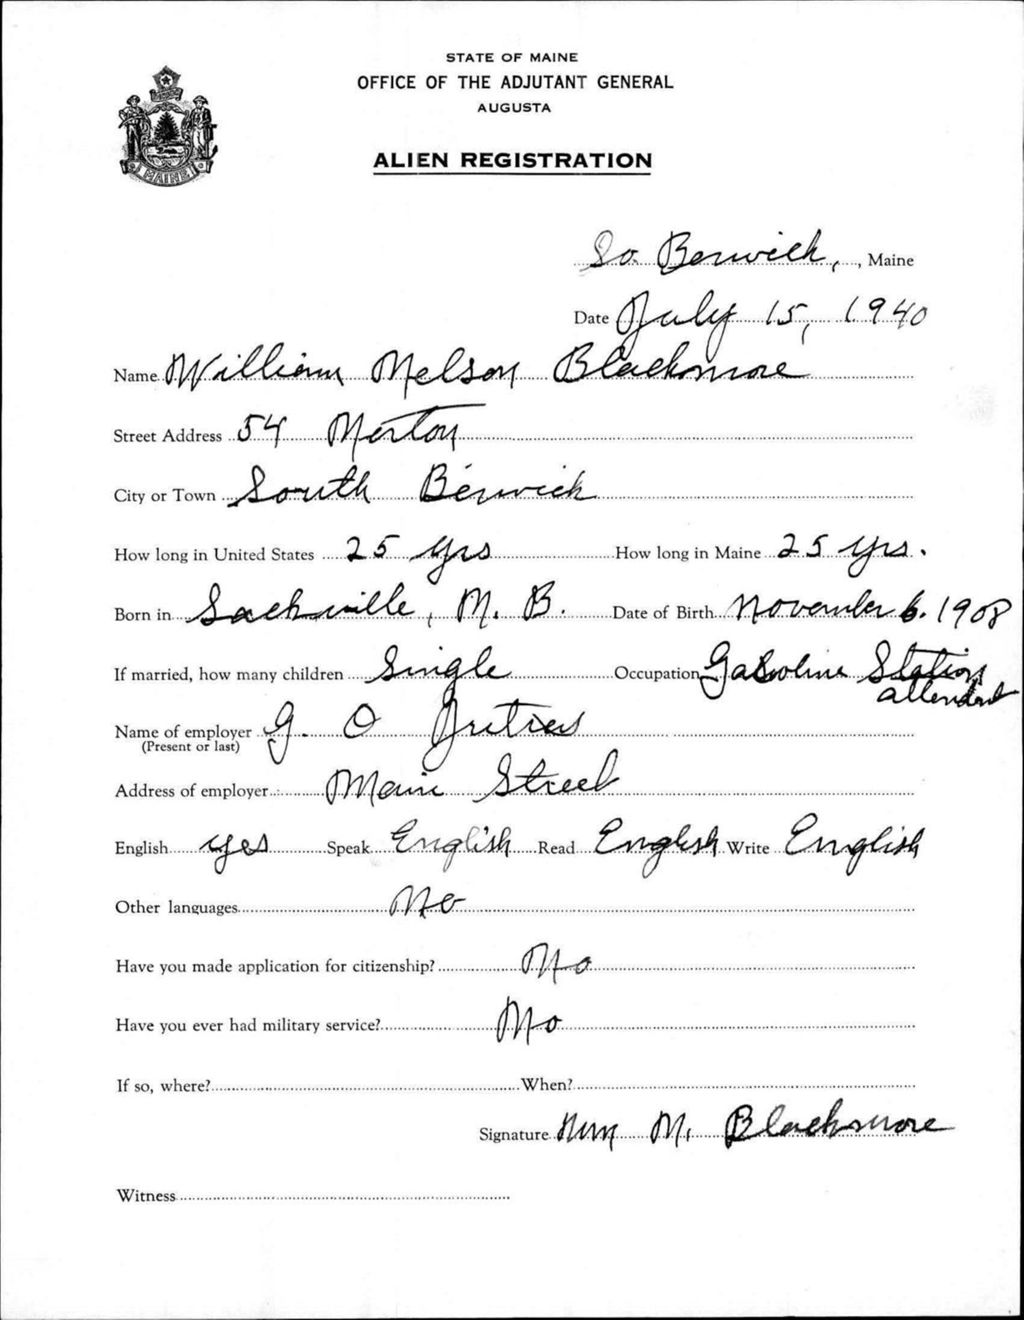 STATE OF MAINE
OFFICE OF THE ADJUTANT GENERAL
AUGUSTA
MAINE
ALIEN REGISTRATION
So. Berwick, , Maine
Date July 15, 1940
Name William Nelson Blackmore
Street Address 54 Norton
City or Town South Berwick
How long in United States 25 yrs How long in Maine 25 yrs.
Born in Sackville, N. B. Date of Birth November 6. 1908
If married, how many children Single Occupation Gasoline Station attendant
Name of employer G. O
(Present or last)
Address of employer Main Street
English yes Speak English Read English Write English
Other languages No
Have you made application for citizenship? No
Have you ever had military service? No
If so, where? When?
Signature Wm N. Blackmore
Witness